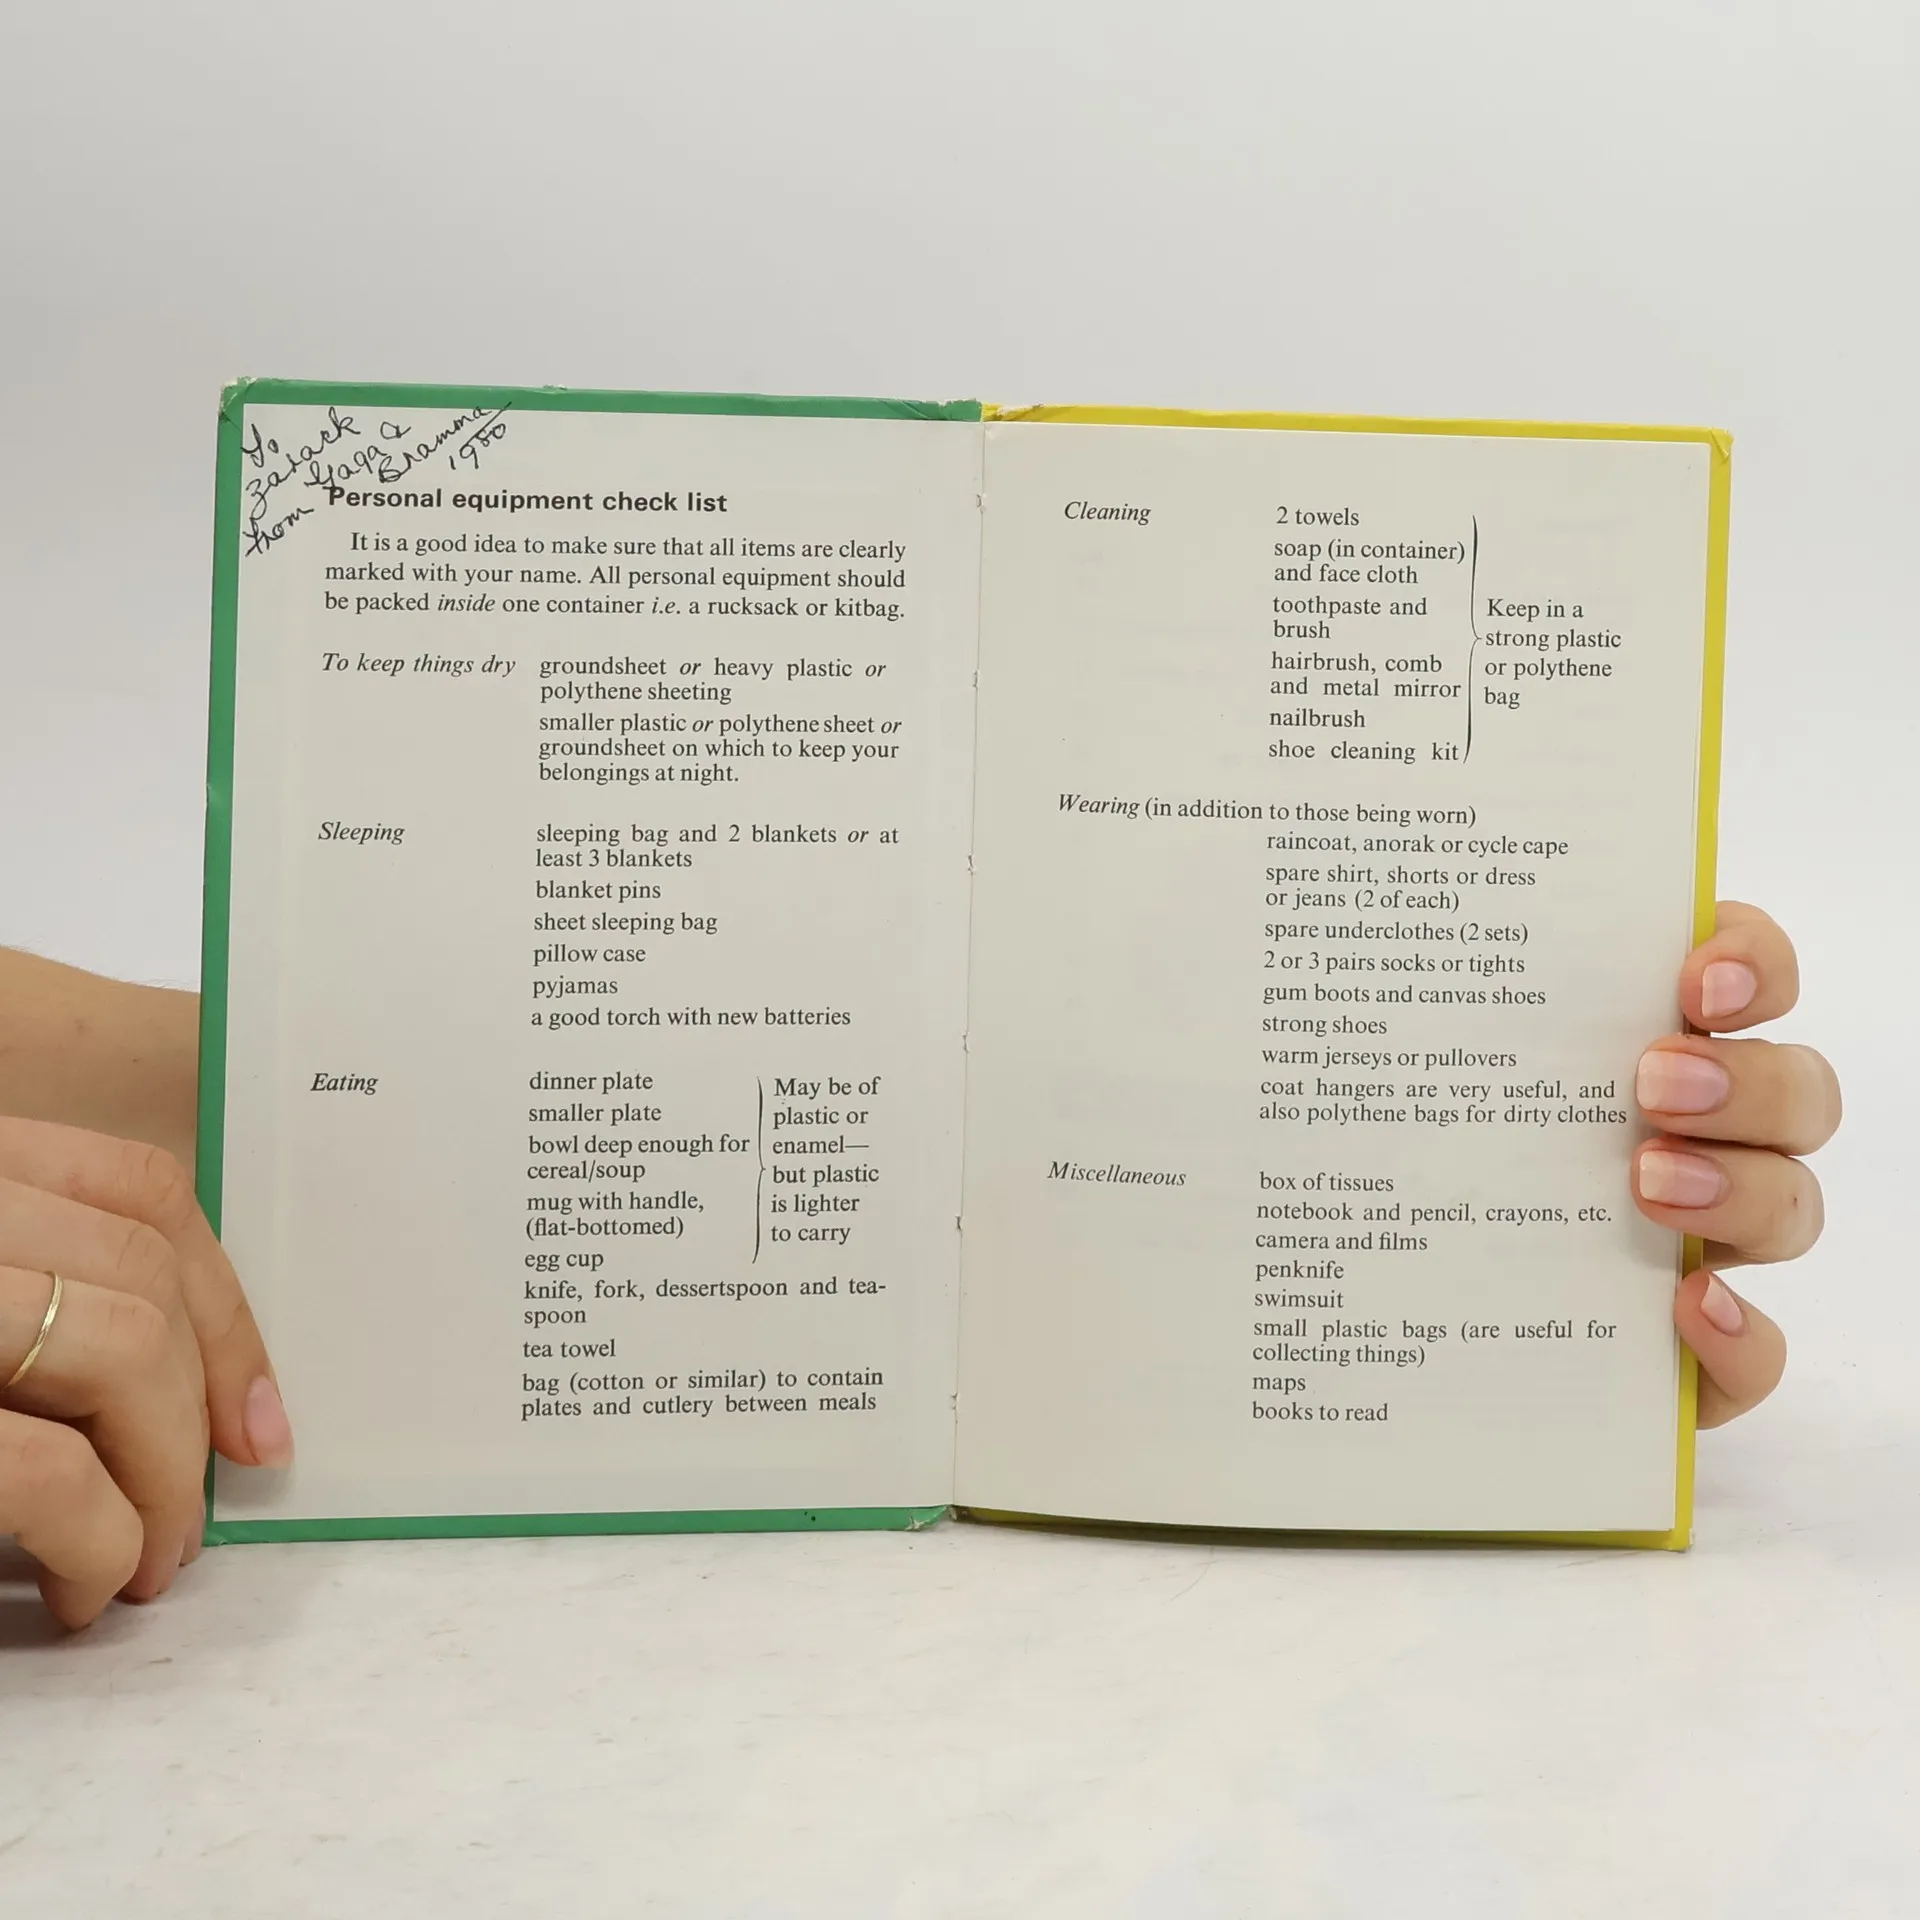 To
Zarack
from Gaga &
Bramma
1980
Personal equipment check list
It is a good idea to make sure that all items are clearly
marked with your name. All personal equipment should
be packed inside one container i.e. a rucksack or kitbag.
To keep things dry groundsheet or heavy plastic or
polythene sheeting
smaller plastic or polythene sheet or
groundsheet on which to keep your
belongings at night.
Sleeping sleeping bag and 2 blankets or at
least 3 blankets
blanket pins
sheet sleeping bag
pillow case
pyjamas
a good torch with new batteries
Eating dinner plate
smaller plate
bowl deep enough for
cereal/soup
mug with handle,
(flat-bottomed)
egg cup
May be of
plastic or
enamel—
but plastic
is lighter
to carry
knife, fork, dessertspoon and tea-
spoon
tea towel
bag (cotton or similar) to contain
plates and cutlery between meals
Cleaning 2 towels
soap (in container)
and face cloth
toothpaste and
brush
hairbrush, comb
and metal mirror
nailbrush
shoe cleaning kit
Keep in a
strong plastic
or polythene
bag
Wearing (in addition to those being worn)
raincoat, anorak or cycle cape
spare shirt, shorts or dress
or jeans (2 of each)
spare underclothes (2 sets)
2 or 3 pairs socks or tights
gum boots and canvas shoes
strong shoes
warm jerseys or pullovers
coat hangers are very useful, and
also polythene bags for dirty clothes
Miscellaneous box of tissues
notebook and pencil, crayons, etc.
camera and films
penknife
swimsuit
small plastic bags (are useful for
collecting things)
maps
books to read